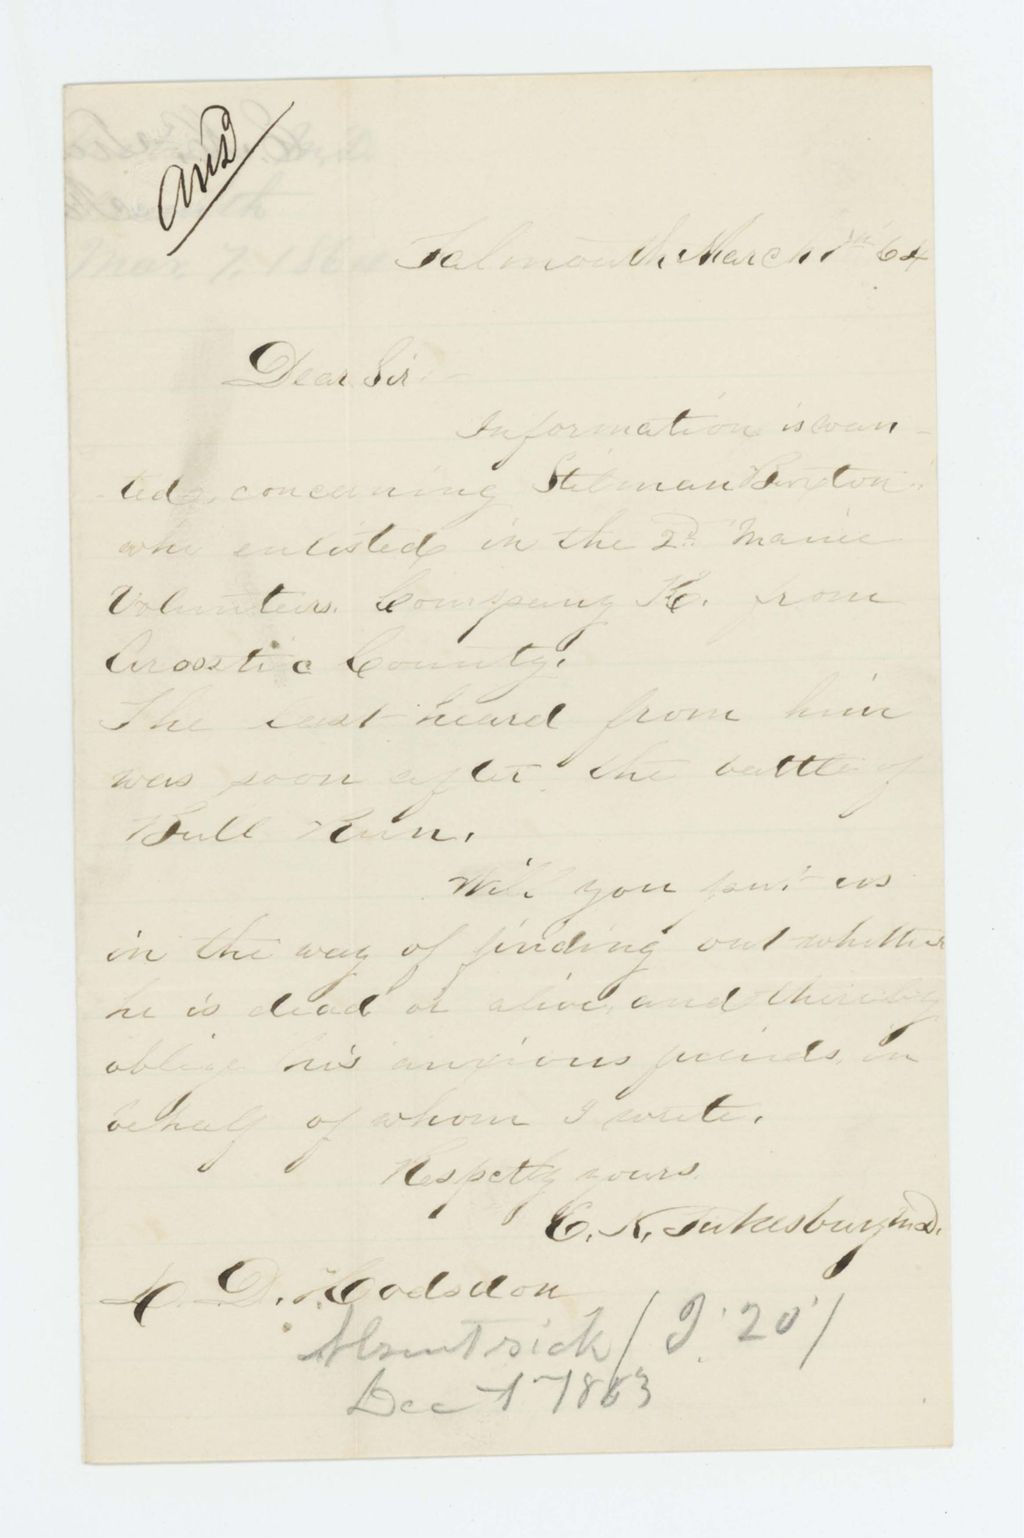 Ans
Falmouth March 7th 64
Dear Sir.
Information is wan-
ted concerning Stilman
who enlisted in the 2d Maine
Volunteers. Company K. from
Aroostic County.
The last heard from him
was soon after the battle of
Bull Run.
Will you put us
in the way of finding out whether
he is dead or alive, and thereby
oblige his anxious friends in
behalf of whom I write.
Respctly yours.
C. K. Tukesbury M.D.
D. Hodsdon
Absent sick / J. 20 /
Dec 1 1863